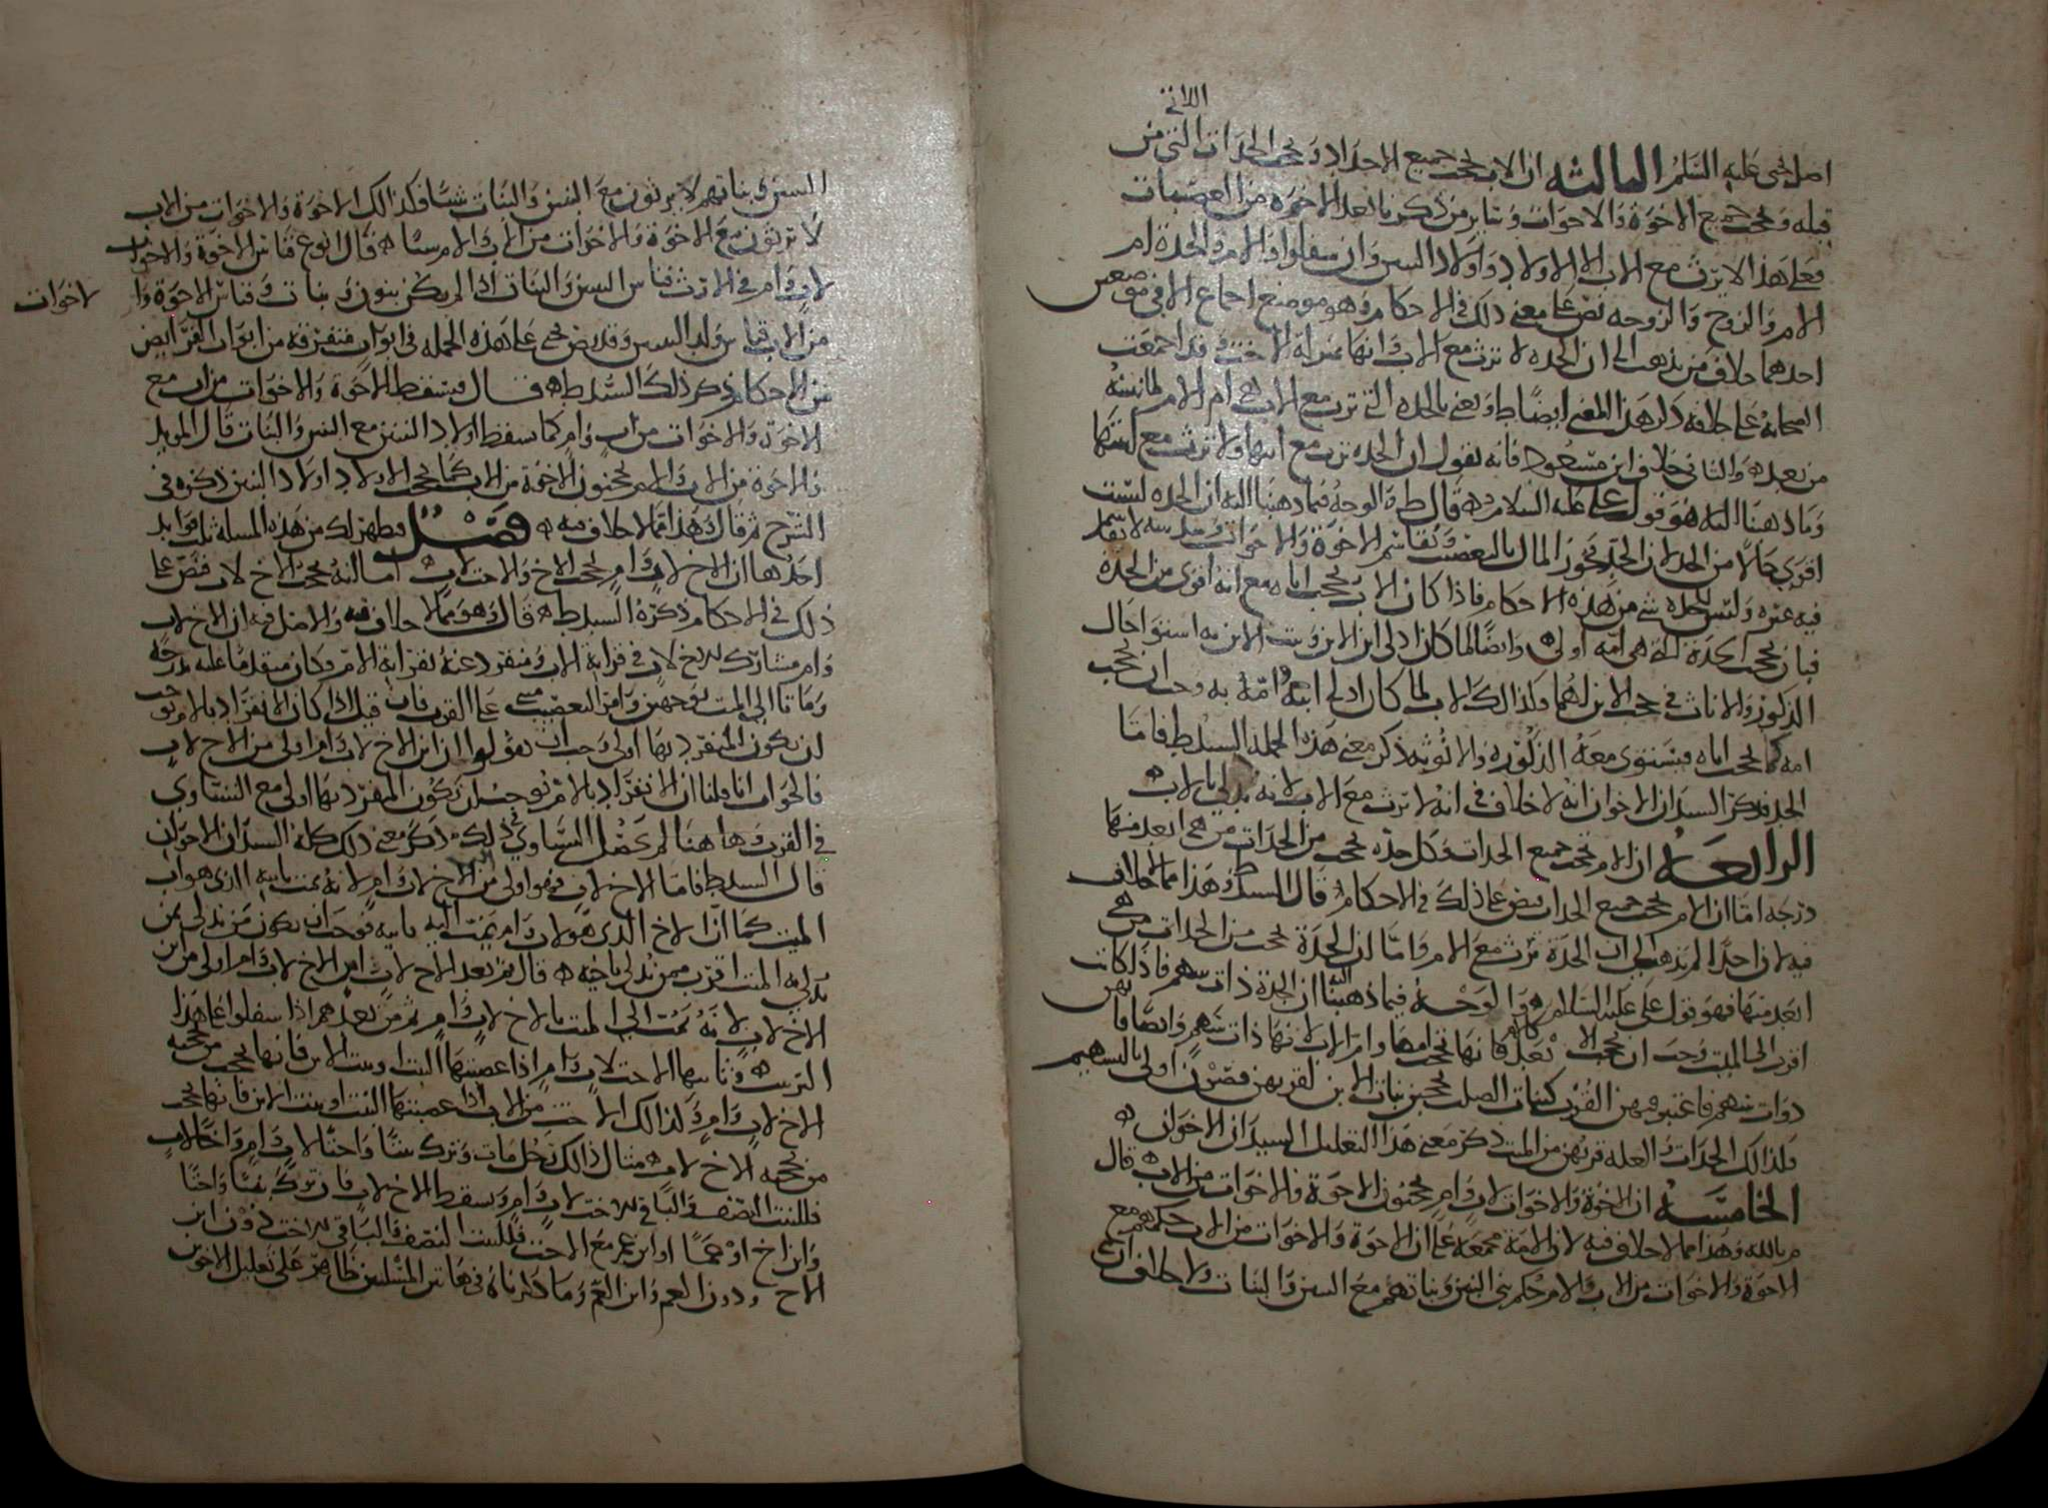 اللاتي
اصل يحيى عليه السلم الثالثة ان الاب يحجب جميع الاجداد ويحجب الجدات التي من
قبله ويحجب جميع الاخوة والاخوات وسائر من ذكرنا بعد الاخوة من العصبات
فعلى هذا لا يرث مع الاب الا الاولاد واولاد البنين وان سفلوا والام والجدة ام
الام والزوج والزوجه نص على معنى ذلك في الاحكام وهو موضع اجماع الا في موضعين
احدهما خلاف من يذهب الى ان الجده لا ترث مع الاب وانها بمنزلة الاخت وقد اجمعت
الصحابة على خلافه ذكر هذا المعنى ايضا ط ويعني بالجده التي ترث مع الاب هي ام الام لما نبينه
من بعد والثاني خلاف ابن مسعود فانه يقول ان الجده ترث مع ابنها ولا ترث مع ابنتها
وما ذهبنا اليه هو قول علي عليه السلام قال ط والوجه فيما ذهبنا اليه ان الجده ليست
اقوى حالا من الجد لان الجد يحوز المال بالتعصيب ويقاسم الاخوة والاخوات
فيه غيره وليس للجده شي من هذه الاحكام فاذا كان الاب يحجب اباه مع انه اقوى من الجدة
فبان يحجب الجدة التي هي امه اولى وايضا لما كان ادلى ابن الابن وبنت الابن به استوا حال
الذكور والاناث في حجب الابن لهما وكذالك الاب لما كان ادلى ابيه وامه به وجب ان يحجب
امه كما يحجب اباه فيستوي معه الذكورة والانوثة ذكر معنى هذه الجملة السيد ط فاما
الجد فذكر السيدان الاخوان انه لا خلاف في انه لا يرث مع الاب لانه يدلي بالاب
الرابعه ان الام تحجب جميع الجدات وكل جده تحجب من الجدات من هي ابعد منها
درجه اما ان الام تحجب جميع الجدات فنص على ذلك في الاحكام قال السيد ط وهذا مما لا خلاف
فيه لان احدا لم يذهب الى ان الجدة ترث مع الام واما ان الجدة تحجب من الجدات من هي
ابعد منها فهو قول علي عليه السلام والوجه فيما ذهبنا اليه ان الجدة ذات سهم فاذا كانت
اقرب الى الميت وجب ان تحجب الابعد كالام فانها تحجب امها وام الاب لانها ذات سهم وايضا فانهن
ذوات سهم فاعتبر فيهن القرب كبنات الصلب يحجبن بنات الابن لقربهن فصرن اولى بالسهم
وكذالك الجدات والعلة قربهن من الميت ذكر معنى هذا التعليل السيدان الاخوان
الخامسة ان الاخوة والاخوات لاب وام يحجبون الاخوة والاخوات من الاب قال
م بالله وهذا مما لا خلاف فيه لان الامة مجمعة على ان الاخوة والاخوات من الاب حكمهم مع
الاخوة والاخوات من الاب والام حكم بني البنين وبناتهم مع البنين والبنات ولا خلاف ان
البنين وبناتهم لا يرثون مع البنين والبنات شيا فكذالك الاخوة والاخوات من الاب
لا يرثون مع الاخوة والاخوات من الاب والام شيا قال ابو ع قياس الاخوة والاخوات
لاب وام في الارث قياس البنين والبنات اذا لم يكن بنون وبنات وقياس الاخوة وا
لاخوات
من الاب قياس ولد البنين وقد نص يحيى على هذه الجملة في ابواب متفرقة من ابواب الفرايض
من الاحكام ذكر ذلك السيد ط قال فيسقط الاخوة والاخوات من اب مع
الاخوة والاخوات من اب وام كما سقط اولاد البنين مع البنين والبنات قال المويد
والاخوة من الاب والام يحجبون الاخوة من الاب كما يحجب الاولاد اولاد البنين ذكره في
الشرح ثم قال وهذا مما لا خلاف فيه فصل فظهر لك من هذه المسلة ثلث فوايد
احدها ان الاخ لاب وام يحجب الاخ والاخت لاب اما انه يحجب الاخ لاب فنص على
ذلك في الاحكام ذكره السيد ط قال وهو مما لا خلاف فيه والاصل فيه ان الاخ لاب
وام مشارك للاخ لاب في قرابة الاب ومنفرد عنه بقرابة الام وكان متقدما عليه بدرجة
وماتا الى الميت بوجهين وامر التعصيب مبني على القرب فان قيل اذا كان الانفراد بالام يوجب
ان يكون المنفرد بها اولى وجب ان تقولوا ان ابن الاخ لاب وام اولى من الاخ لاب
فالجواب انا قلنا ان الانفراد بالام يوجب ان يكون المنفرد بها اولى مع التساوي
في القرب وها هنا لم يحصل التساوي في ذلك ذكر معنى ذلك كله السيدان الاخوان
قال السيد ط فاما الاخ لاب فهو اولى من ابن الاخ لاب وام لانه يمت بابيه الذي هو اب
الميت كما ان الاخ الذي هو لاب وام يمت اليه بابيه فوجب ان يكون من يدلي بمن
يدلي به الميت اقرب ممن يدلي باخيه قال ثم بعد الاخ لاب ابن الاخ لاب وام اولى من ابن
الاخ لاب لانه يمت الى الميت بالاخ لاب وام ثم من بعدهم اذا سفلوا على هذا
الترتيب وثانيها الاخت لاب وام اذا عصبتها البنت او بنت الابن فانها تحجب من يحجبه
الاخ لاب وام وكذالك الاخت من الاب اذا عصبتها البنت او بنت الابن فانها تحجب
من يحجبه الاخ لاب مثال ذالك رجل مات وترك بنتا واختا لاب وام واخا لاب
فللبنت النصف والباقي للاخت لاب وام وسقط الاخ لاب فان ترك بنتا واختا
وابن اخ او عما او ابن عم مع الاخت فللبنت النصف والباقي للاخت دون ابن
الاخ ودون العم وابن العم وما ذكرناه في هاتين المسلتين ظاهر على تعليل الاخوين